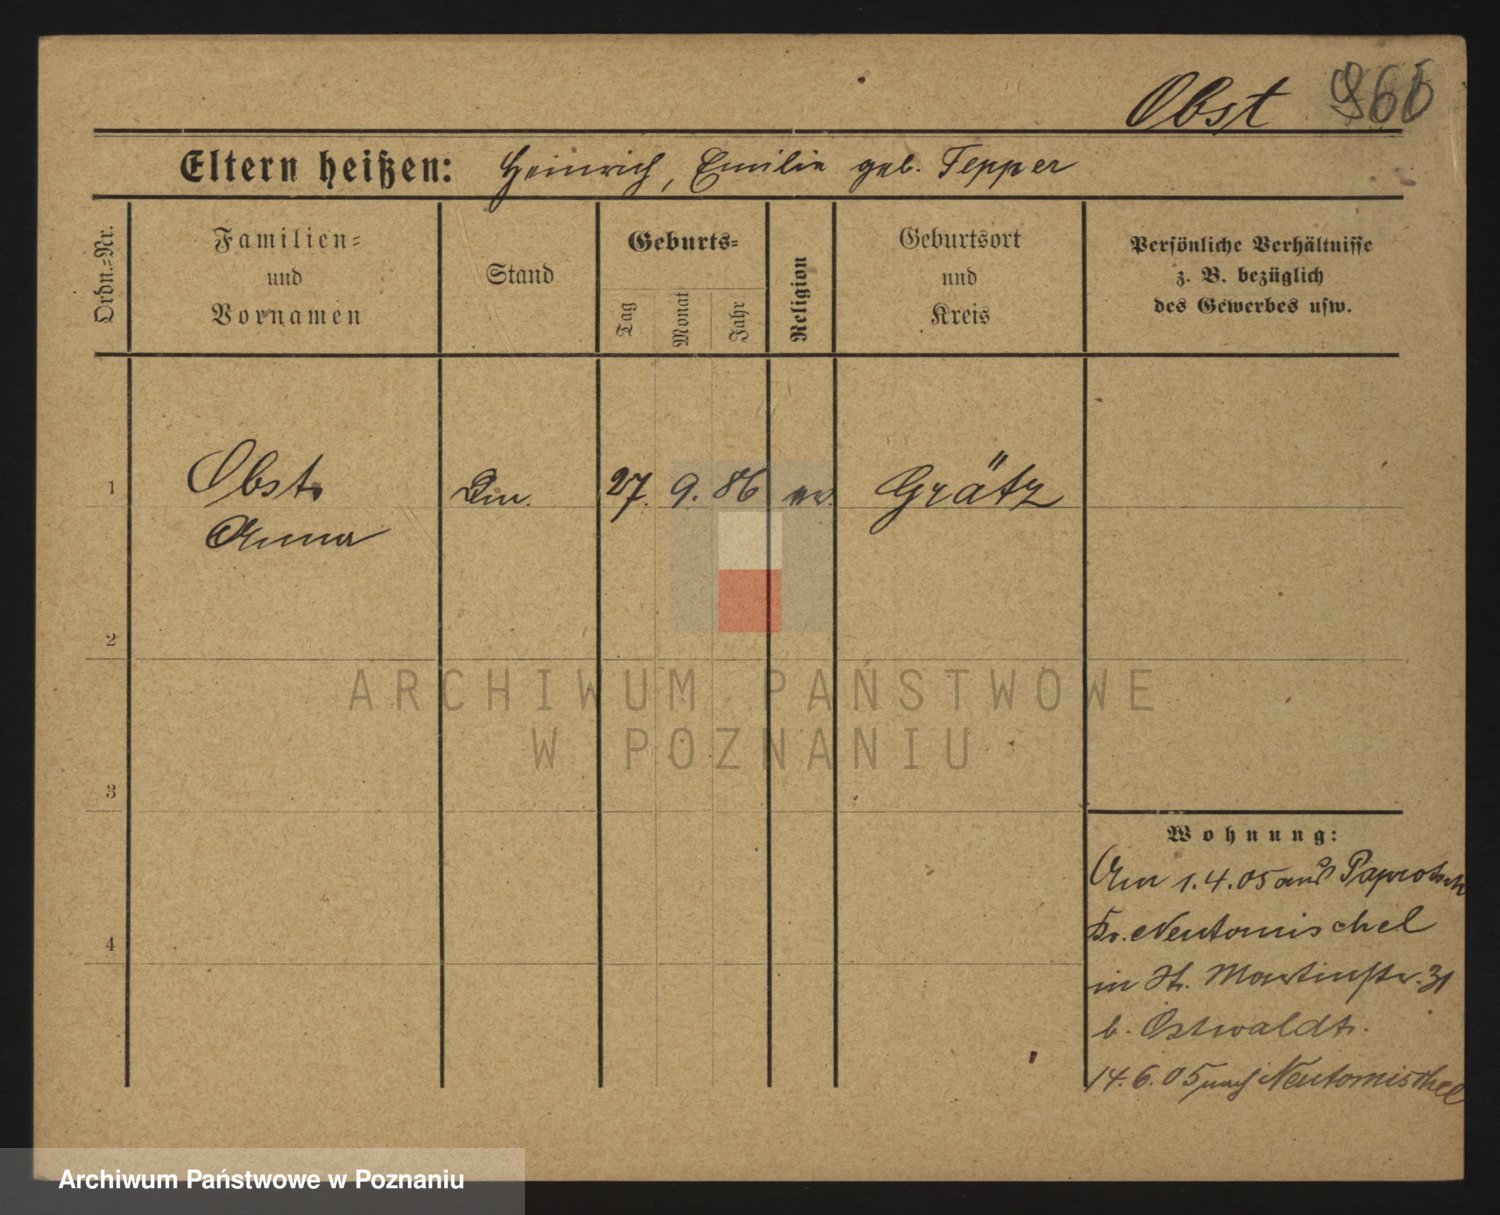 Obst 866
Eltern heißen: Heinrich, Emilie geb. Tepper
Ordn.-Nr.
Familien-
und
Vornamen
Stand
Geburts-
Tag
Monat
Jahr
Religion
Geburtsort
und
Kreis
Persönliche Verhältnisse
z. B. bezüglich
des Gewerbes usw.
1 Obst 27. 9. 86 ev. Grätz
Anna
2
ARCHIWUM PAŃSTWOWE
W POZNANIU
3
Wohnung:
Am 1.4.05 aus Paprotsch
Kr. Neutomischel
4
in St. Martinstr. 31
b. Ostwaldt.
14.6.05 nach Neutomischel
Archiwum Państwowe w Poznaniu